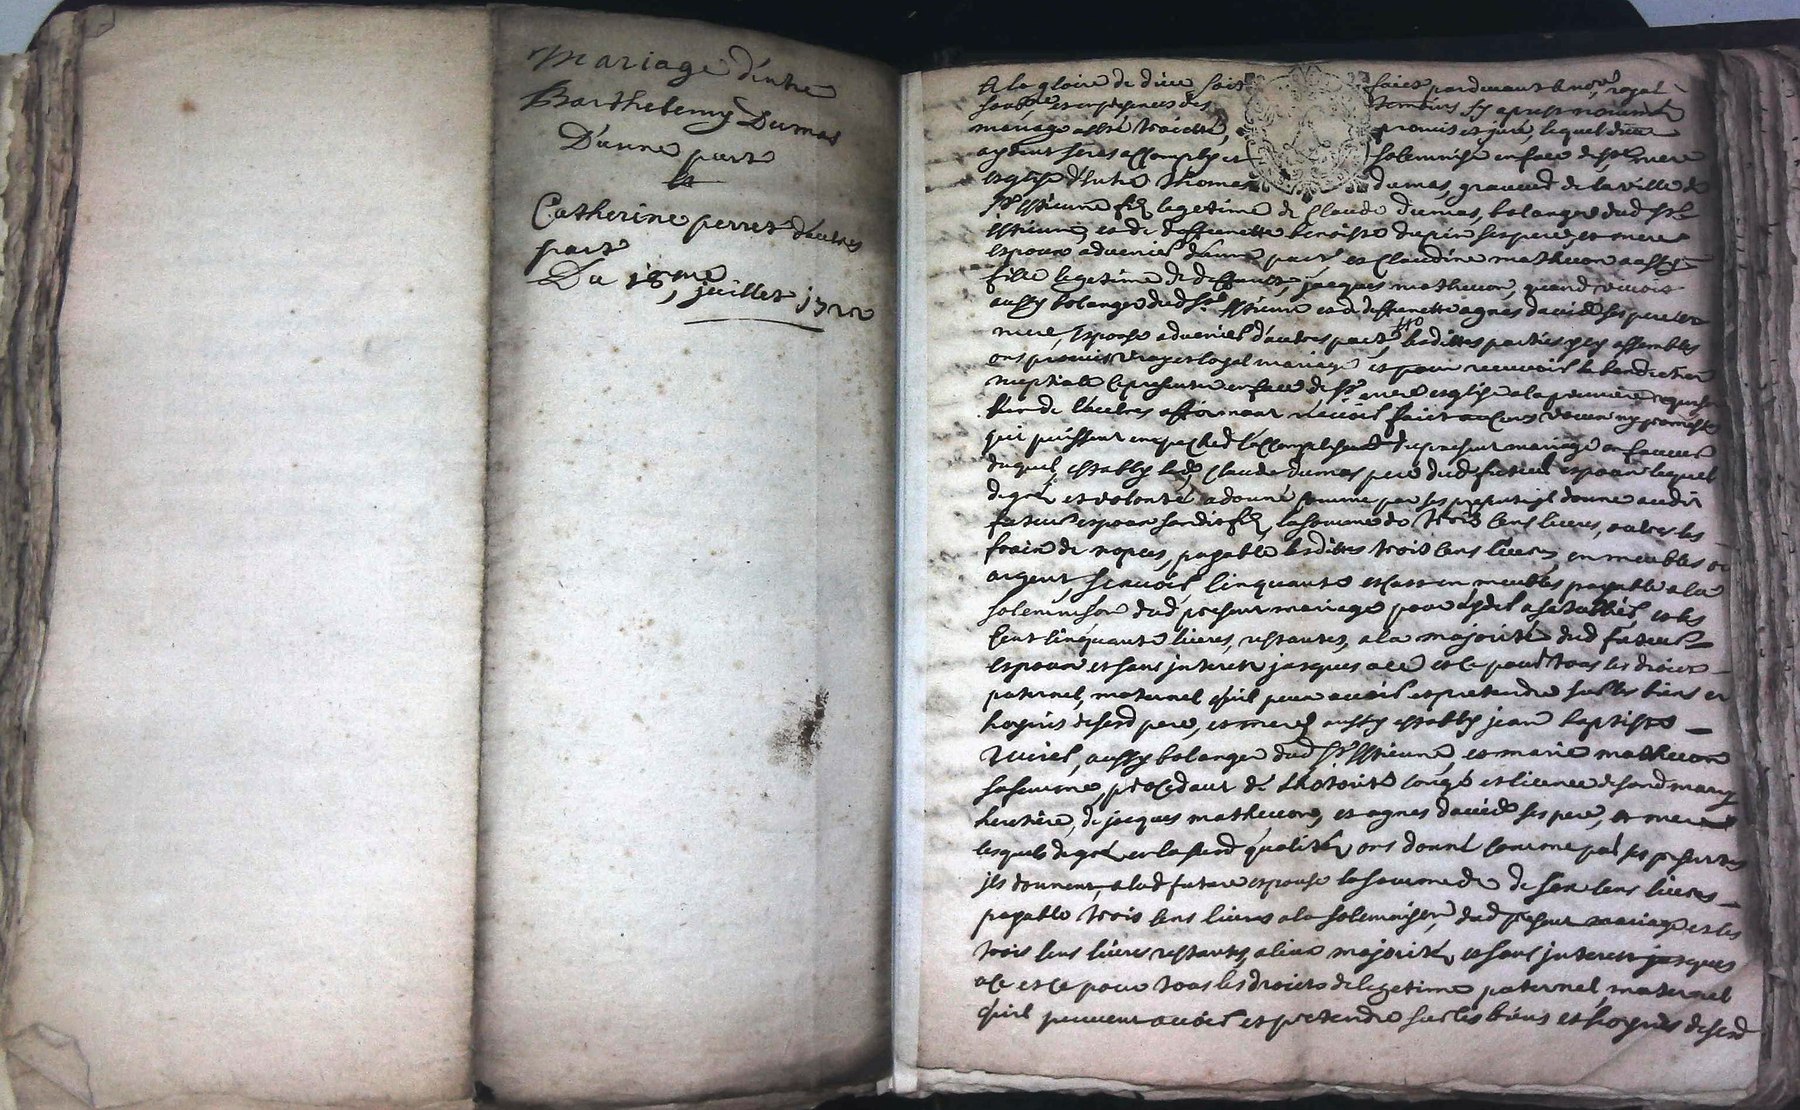 Mariage d'entre
Barthelemy Dumas
D'une part
Et
Catherine perret d'autres
part
Du 18me juillet 1722
A la gloire de dieu soit faict pardevant le nore royal
soubsne et en presences des temoins sy apres nommés
mariage a esté traicté, promis et juré, lequel dieu
aydent seras accomply et solemnisé en face de ste mere
esglise d'Entre Thomas dumas, graveur de la ville de
St Estienne fils legetime de Claude dumas, bolanger dud St
Estienne, et de deffunette benoiste dupin ses pere et mere
espoux advenir d'une part et Claudine mathevon aussy
fille legetime de deffunct jacques mathevon, quand vivoit
aussy bolanger dud St Estienne et de deffunette agnes david ses pere et
mere, Espouse advenir d'autres part, lesdittes parties assembles
ont promis vray et loyal mariage et pour recevoir la benediction
nuptiale se presenter en face de ste mere esglise a la premiere
l'un de l'autres affirmant n'avoir faict aucuns vœux ny promesse
qui puissent empecher l'accomplissement du present mariage en faveur
duquel, estably led Claude dumas pere dud futeur espoux lequel
de gré et volonté a donné comme par ses presentes il donne audit
futeur espoux son dit fils, la somme de trois cens livres, outre les
frais de nopces, payable lesdittes trois cens livres, en meubles ou
argent, scavoir, cinquante en meubles payable a la
solemnison dud present mariage et les
cent cinquante livres, restantes, a la majorité dud futeur
espoux et sans interets jusques a ce et ce pour tous les droits
paternel, maternel qu'il peux avoir et pretendre sur les biens et
hoyries de sesd pere, et mere, aussy estably jean baptiste
aussy bolanger dud St Estienne, et marie mathevon
sa femme, procedant de l'hotorité congé et licence de sond mary
heretiere, de jacques mathevon, et agnes david ses pere, et mere
lesquels de gré en lasusd qualité, ont donné comme par ses presentes
ils donnent, a lad future espouse la somme de de six cens livres
payable trois cens livres a la solemnison, dud present mariage et les
trois cens livres restantes a leur majorité, et sans interets jusques
a ce et ce pour tous les droits de legetime paternel, maternel
qu'il peuvent avoir et pretendre sur les biens et hoyries de sesd